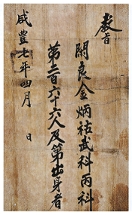 教旨
閑良金炳祜武科丙科
第三百六十六人及第出身者
咸豊七年四月 日